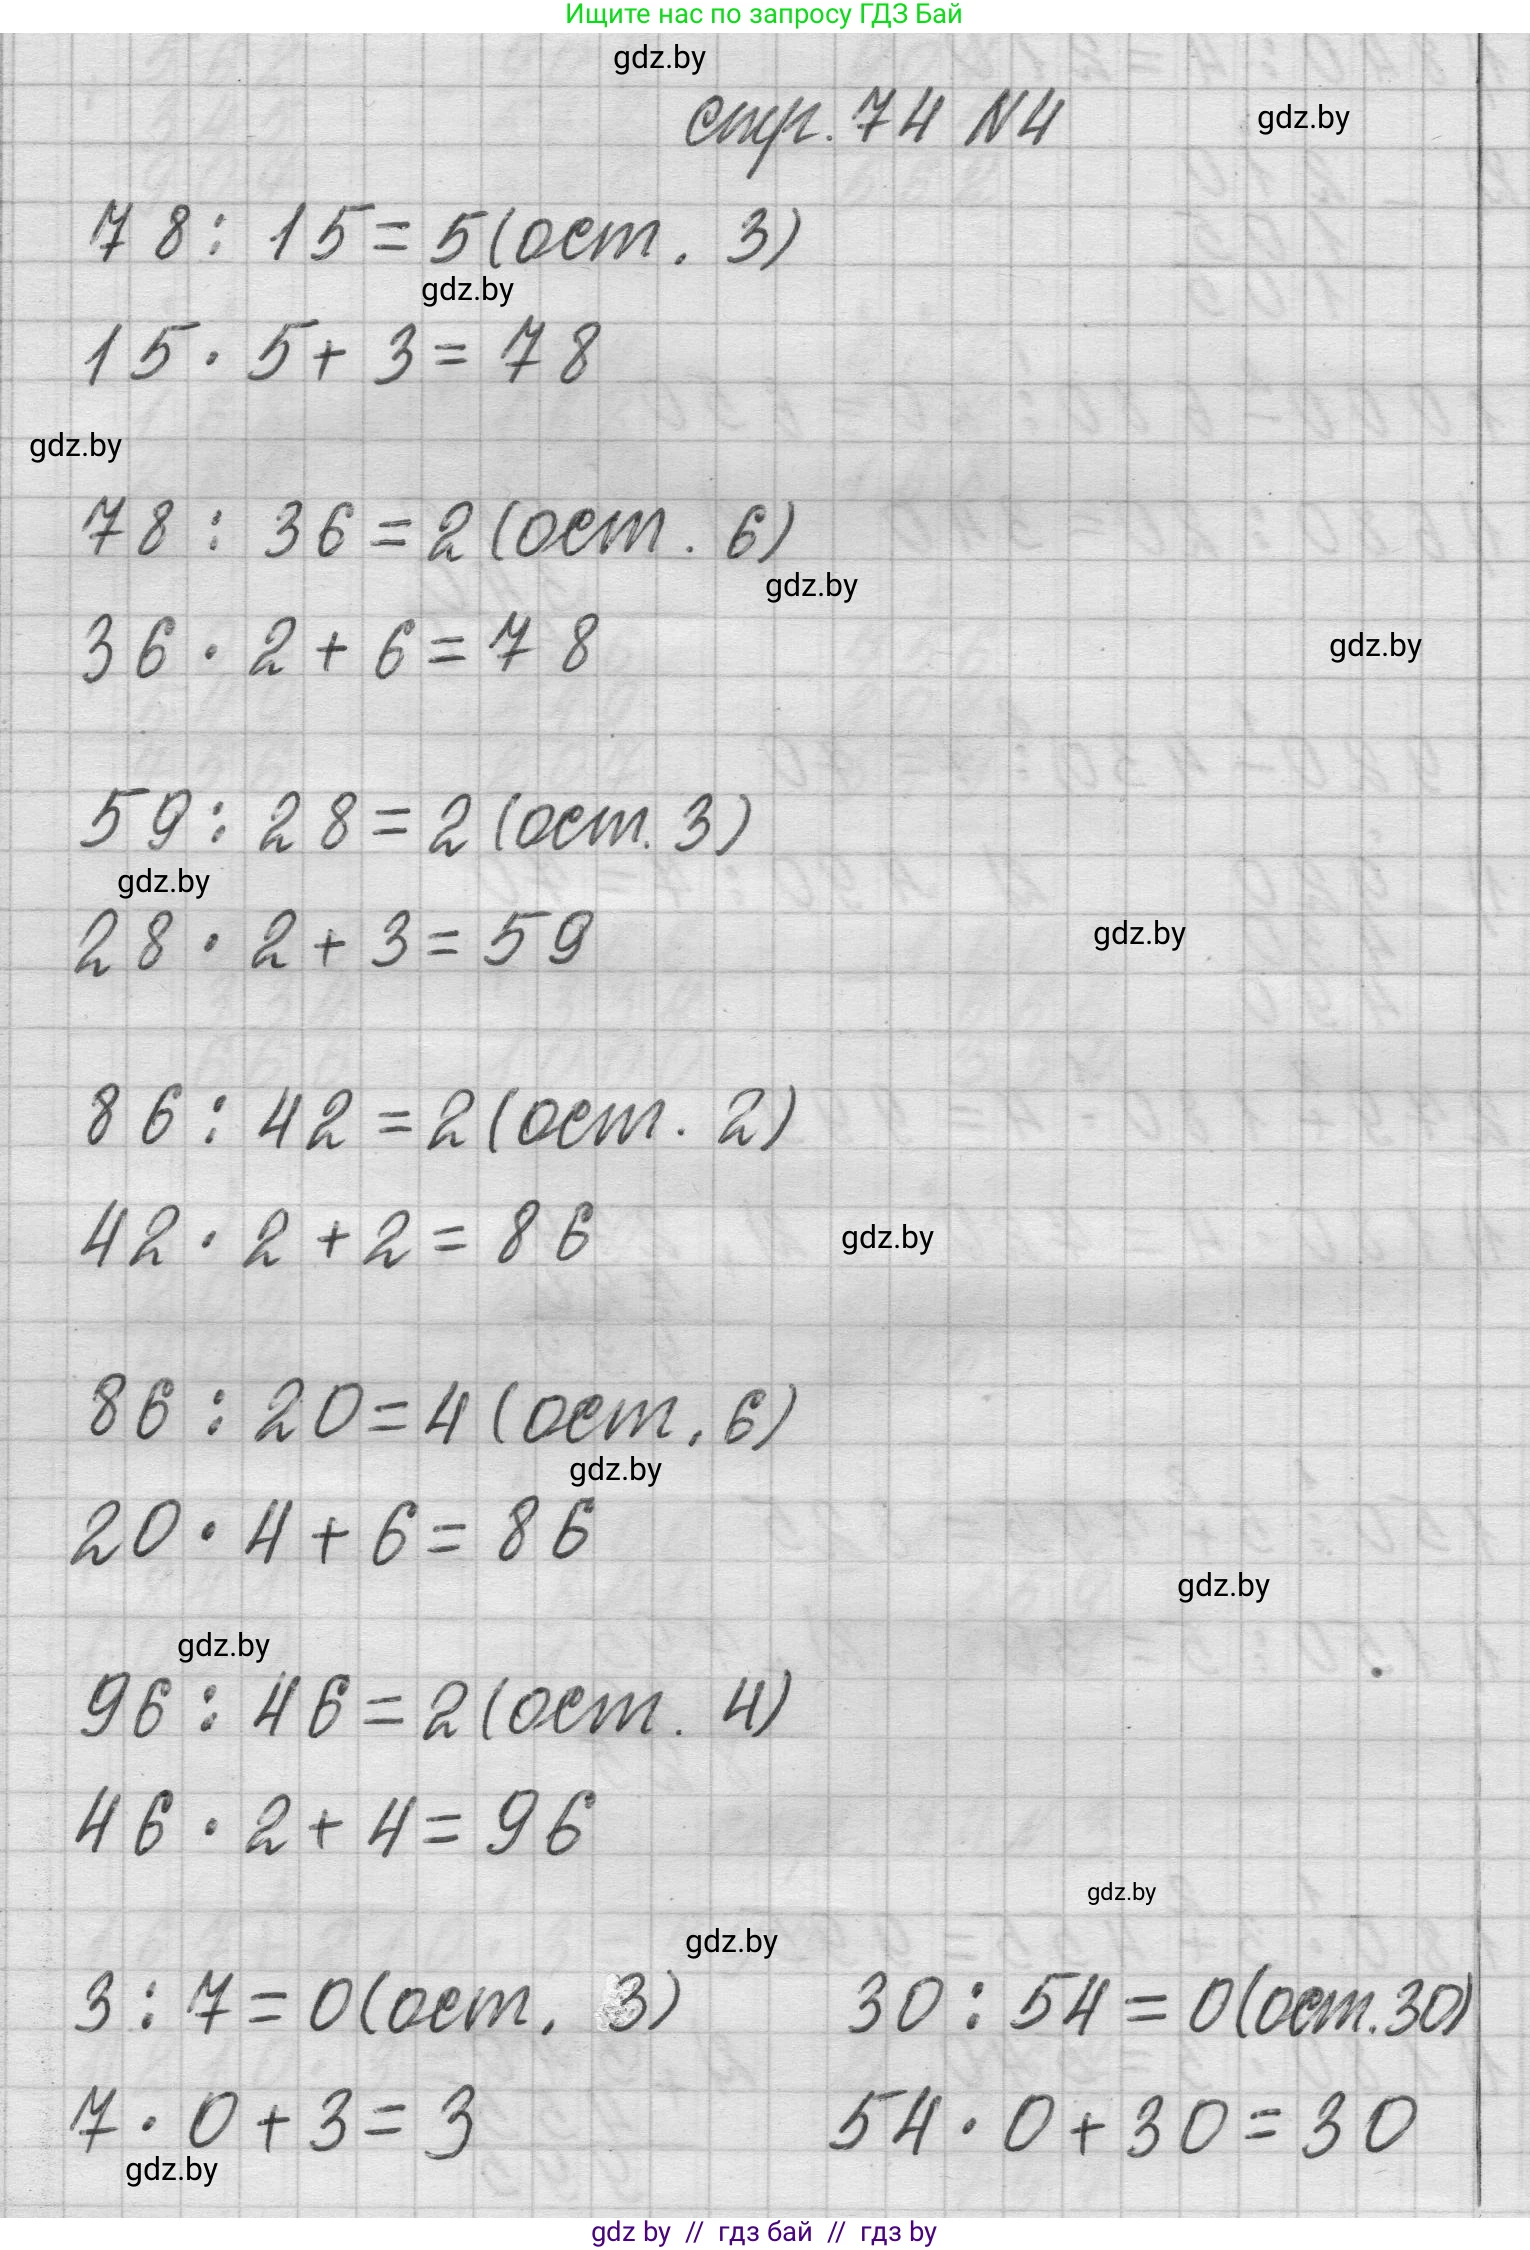 Ищите нас по запросу ГДЗ Бай
gdz.by
стр. 74 N4
gdz.by
78 : 15 = 5 (ост. 3)
gdz.by
15 · 5 + 3 = 78
gdz.by
78 : 36 = 2 (ост. 6)
gdz.by
36 · 2 + 6 = 78
gdz.by
59 : 28 = 2 (ост. 3)
gdz.by
28 · 2 + 3 = 59
gdz.by
86 : 42 = 2 (ост. 2)
42 · 2 + 2 = 86
gdz.by
86 : 20 = 4 (ост. 6)
gdz.by
20 · 4 + 6 = 86
gdz.by
gdz.by
96 : 46 = 2 (ост. 4)
46 · 2 + 4 = 96
gdz.by
gdz.by
3 : 7 = 0 (ост. 3) 30 : 54 = 0 (ост. 30)
7 · 0 + 3 = 3 54 · 0 + 30 = 30
gdz.by
gdz by // гдз бай // гдз by